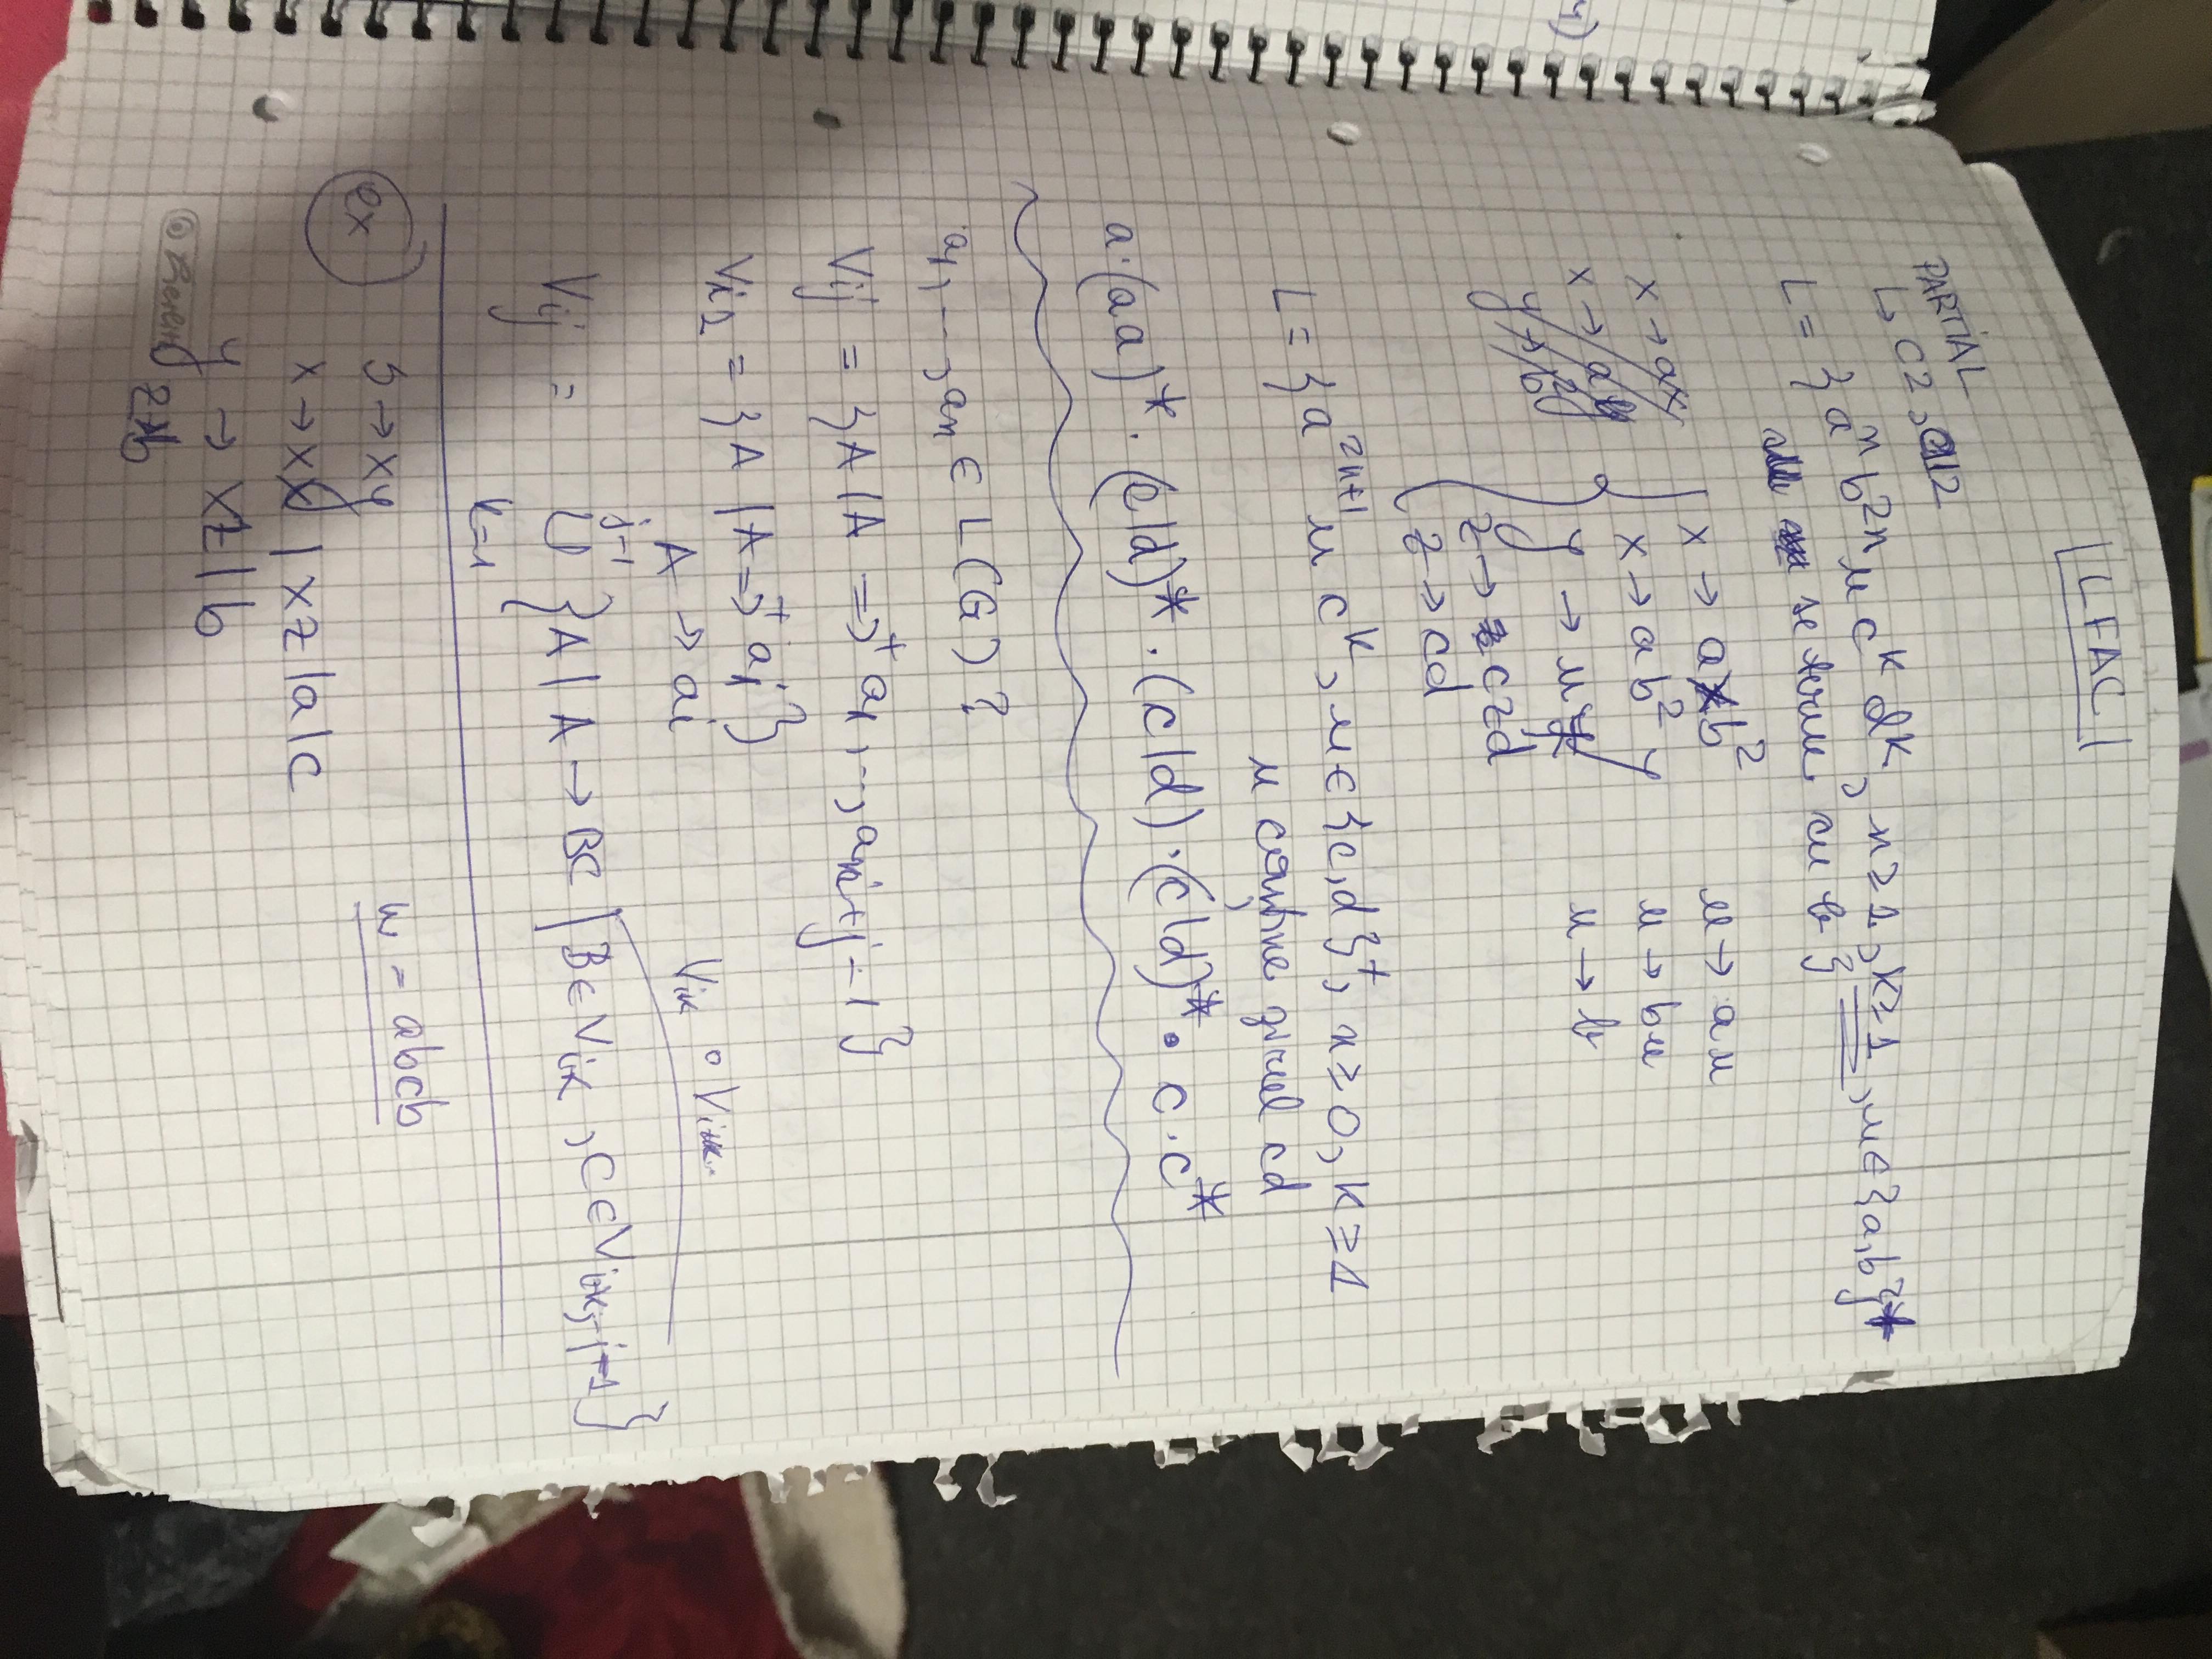 LFAC
PARTIAL
↳ C2, C112
L = {aⁿ b²ⁿ u cᵏ dᵏ, n ≥ 1, k ≥ 1, u ∈ {a,b}*
se term. cu b }
x → ax
x → ay
y → b²y
x → axb²
x → ab² y
y → u z
z → czd
z → cd
u → au
u → bu
u → b
L = {a²ⁿ⁺¹ u cᵏ, u ∈ {c,d}⁺, n ≥ 0, k ≥ 1
u conține șirul cd
a·(aa)*·(c|d)*·(c|d)·(c|d)*·c·c*
a₁, ..., aₙ ∈ L(G) ?
Vij = {A | A ⇒⁺ a₁, .., ai+j-1 }
Vi1 = {A | A ⇒⁺ ai }
A → ai
Vik ∘ Vi+k..
j-1
Vij = ∪ {A | A → BC | B ∈ Vik, C ∈ Vi+k, j-1 }
k=1
ex
S → xy
w = abcb
x → xx | xz | a | c
y → xz | b
z → b